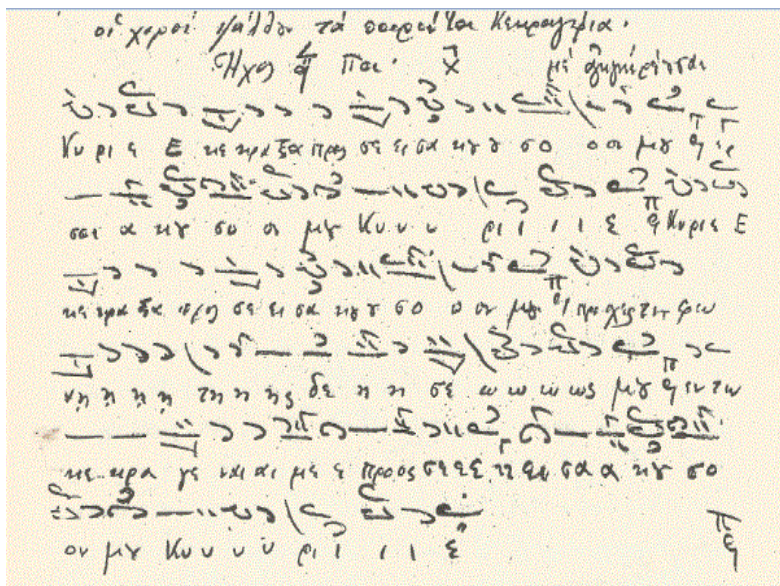 οἱ χοροί ψάλλουν τά
Ἦχος Πα
Κυ ρι ε Ε κε κρα ξα προς σε ει σα κου ου σο ο ον μου ει
σα α κου σο ον μου Κυ υ υ υ ρι ι ι ι ε Κυριε Ε
κε κρα ξα προς σε ει σα κου ου σο ο ον μου προσχες τη φω
νη η η η τη η ης δε η η σε ω ω ω ως μου εν τω
κε κρα γε ναι αι με ε προ ος σε ε ε ει σα α κου σο
ον μου Κυ υ υ υ ρι ι ι ι ε